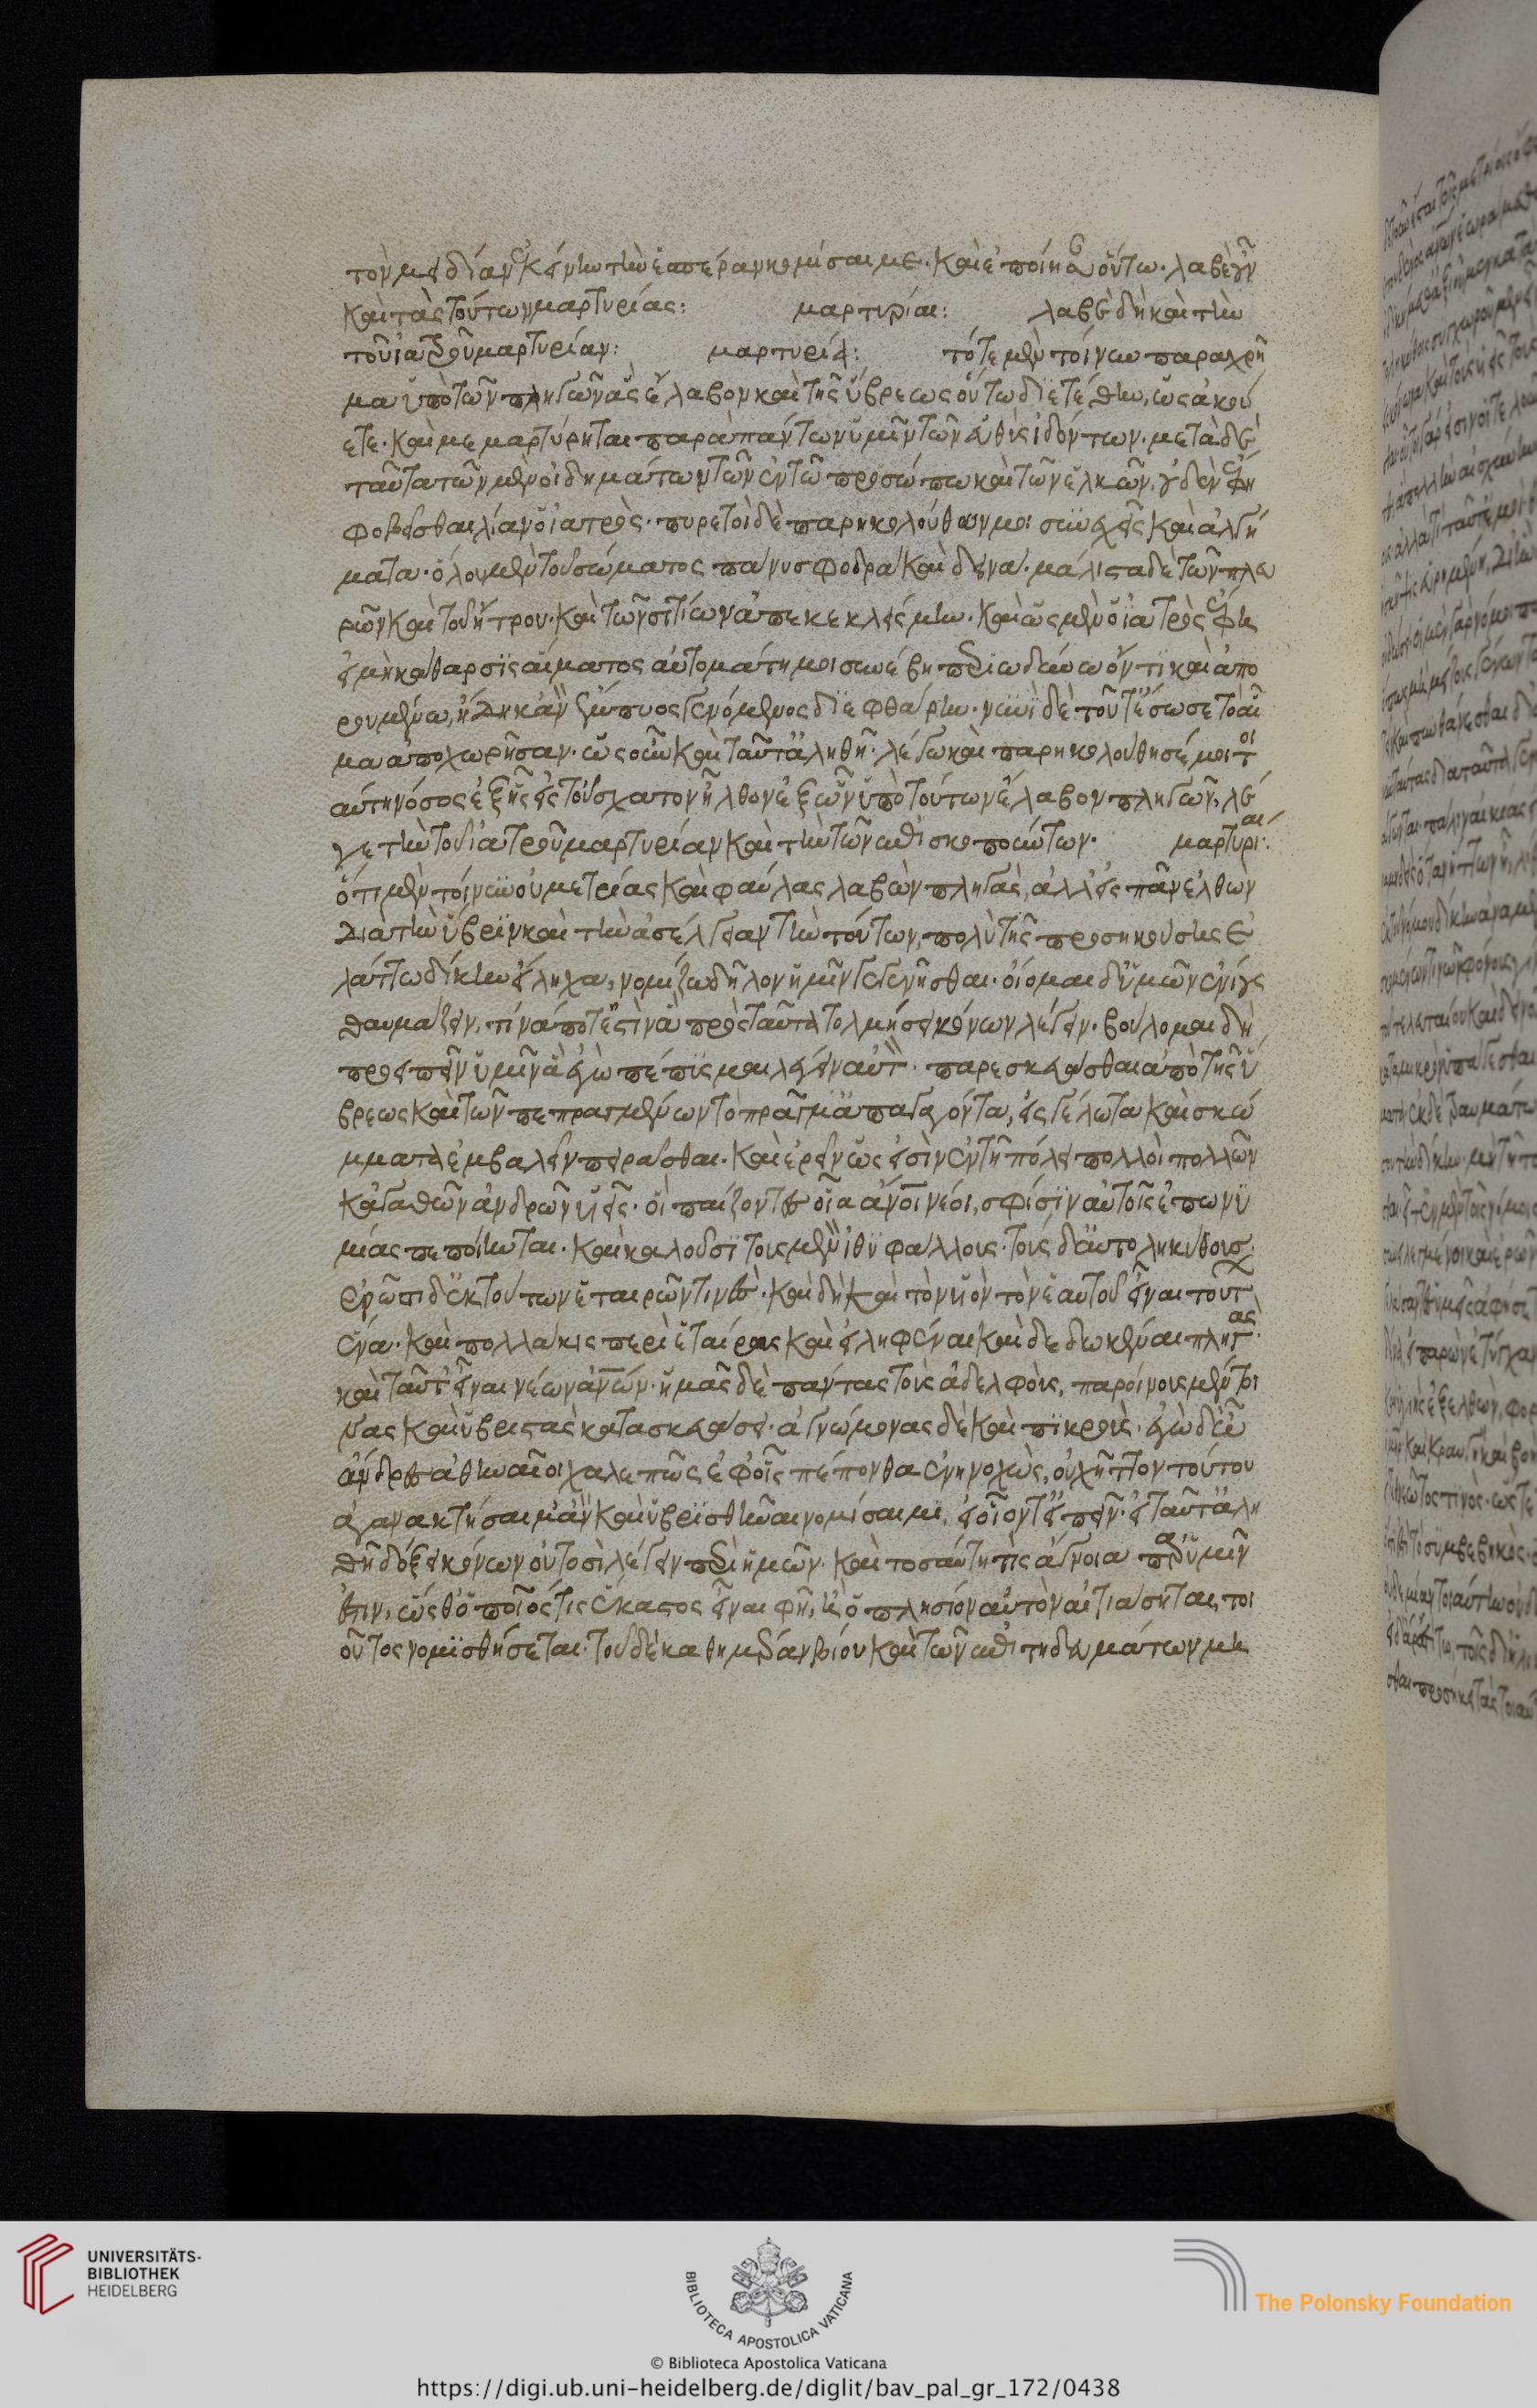 τὸν μειδίαν ἐκείνην τὴν ἑσπέραν κομίσαι με. καὶ ἐποίησαν οὕτω. λαβὲ οὖν
καὶ τὰς τούτων μαρτυρίας: μαρτυρίαι: λαβὲ δὴ καὶ τὴν
τοῦ ἰατροῦ μαρτυρίαν: μαρτυρία: τότε μὲν τοίνυν παραχρῆ
μα ὑπὸ τῶν πληγῶν ἃς ἔλαβον καὶ τῆς ὕβρεως οὕτω διετέθην, ὡς ἀκού
ετε. καὶ μεμαρτύρηται παρὰ πάντων ὑμῖν τῶν εὐθὺς ἰδόντων. μετὰ δὲ
ταῦτα τῶν μὲν οἰδημάτων τῶν ἐν τῶ προσώπω καὶ τῶν ἑλκῶν, οὐδὲν ἔφη
φοβεῖσθαι λίαν ὁ ἰατρός. πυρετοὶ δὲ παρηκολούθουν μοι συνεχεῖς καὶ ἀλγή
ματα. ὅλου μὲν τοῦ σώματος πάνυ σφοδρὰ καὶ δεινά. μάλιστα δὲ τῶν πλευ
ρῶν καὶ τοῦ ἤτρου. καὶ τῶν σιτίων ἀπεκεκλείμην. καὶ ὡς μὲν ὁ ἰατρὸς ἔφη
εἰ μὴ κάθαρσις αἵματος αὐτομάτη μοι συνέβη περιωδύνω ὄντι καὶ ἀπο
ρουμένω, ἤδη κἂν ἔμπυος γενόμενος διεφθάρην. νυνὶ δὲ τοῦτ' ἔσωσε τὸ αἷ
μα ἀποχωρῆσαν. ὡς οὖν καὶ ταῦτ' ἀληθῆ λέγω καὶ παρηκολούθησέ μοι τοι
αύτη νόσος ἐξ ἧς εἰς τοὔσχατον ἦλθον ἐξ ὧν ὑπὸ τούτων ἔλαβον πληγῶν, λέ
γε τὴν τοῦ ἰατροῦ μαρτυρίαν καὶ τὴν τῶν ἐπισκοπούντων. μαρτυρίαι:
ὅτι μὲν τοίνυν οὐ μετρίας καὶ φαύλας λαβὼν πληγὰς, ἀλλ' εἰς πᾶν ἐλθὼν
διὰ τὴν ὕβριν καὶ τὴν ἀσέλγειαν τὴν τούτων, πολὺ τῆς προσηκούσης ἐ
λάττω δίκην εἴληχα, νομίζω δῆλον ὑμῖν γεγενῆσθαι. οἴομαι δ' ὑμῶν ἐνίους
θαυμάζειν, τίνα ποτ' ἐστὶν ἃ πρὸς ταῦτα τολμήσει κόνων λέγειν. βούλομαι δὴ
προειπεῖν ὑμῖν ἃ ἐγὼ πέπυσμαι λέγειν αὐτὸν παρεσκευάσθαι ἀπὸ τῆς ὕ
βρεως καὶ τῶν πεπραγμένων τὸ πρᾶγμ' ἀπαγαγόντα, εἰς γέλωτα καὶ σκώ
μματα ἐμβαλεῖν πειράσθαι. καὶ ἐρεῖν ὡς εἰσὶν ἐν τῆ πόλει πολλοὶ πολλῶν
κἀγαθῶν ἀνδρῶν υἱεῖς. οἳ παίζοντες οἷα ἄνθρωποι νέοι, σφίσιν αὐτοῖς ἐπωνυ
μίας πεποίηνται. καὶ καλοῦσι τοὺς μὲν ἰθυφάλλους. τοὺς δ' αὐτοληκύθους.
ἐρῶσι δ' ἐκ τούτων ἑταιρῶν τινές. καὶ δὴ καὶ τὸν υἱὸν τὸν ἑαυτοῦ εἶναι τούτων
ἕνα. καὶ πολλάκις περὶ ἑταίρας καὶ εἰληφέναι καὶ δεδωκέναι πληγάς.
καὶ ταῦτ' εἶναι νέων ἀνθρώπων. ἡμᾶς δὲ πάντας τοὺς ἀδελφοὺς, παροίνους μέν τοι
νας καὶ ὑβριστὰς κατασκευάσει. ἀγνώμονας δὲ καὶ πικρούς. ἐγὼ δ' ὦ
ἄνδρες ἀθηναῖοι χαλεπῶς ἐφ' οἷς πέπονθα ἐνηνοχὼς, οὐχ ἧττον τούτου
ἀγανακτήσαιμ' ἂν καὶ ὑβρισθῆναι νομίσαιμι, εἰ οἷόν τ' εἰπεῖν. εἰ ταῦτ' ἀλη
θῆ δόξει κόνων οὑτοσὶ λέγειν περὶ ἡμῶν. καὶ τοσαύτη τις ἄγνοια παρ' ὑμῖν
ἐστιν, ὥσθ' ὁποῖος τις ἕκαστος εἶναι φῆ, ἢ ὁ πλησίον αὐτὸν αἰτιάσηται, τοι
οῦτος νομισθήσεται. τοῦ δὲ καθημέραν βίου καὶ τῶν ἐπιτηδευμάτων μη
UNIVERSITÄTS-
BIBLIOTHEK
HEIDELBERG
BIBLIOTECA APOSTOLICA VATICANA
The Polonsky Foundation
© Biblioteca Apostolica Vaticana
https://digi.ub.uni-heidelberg.de/diglit/bav_pal_gr_172/0438